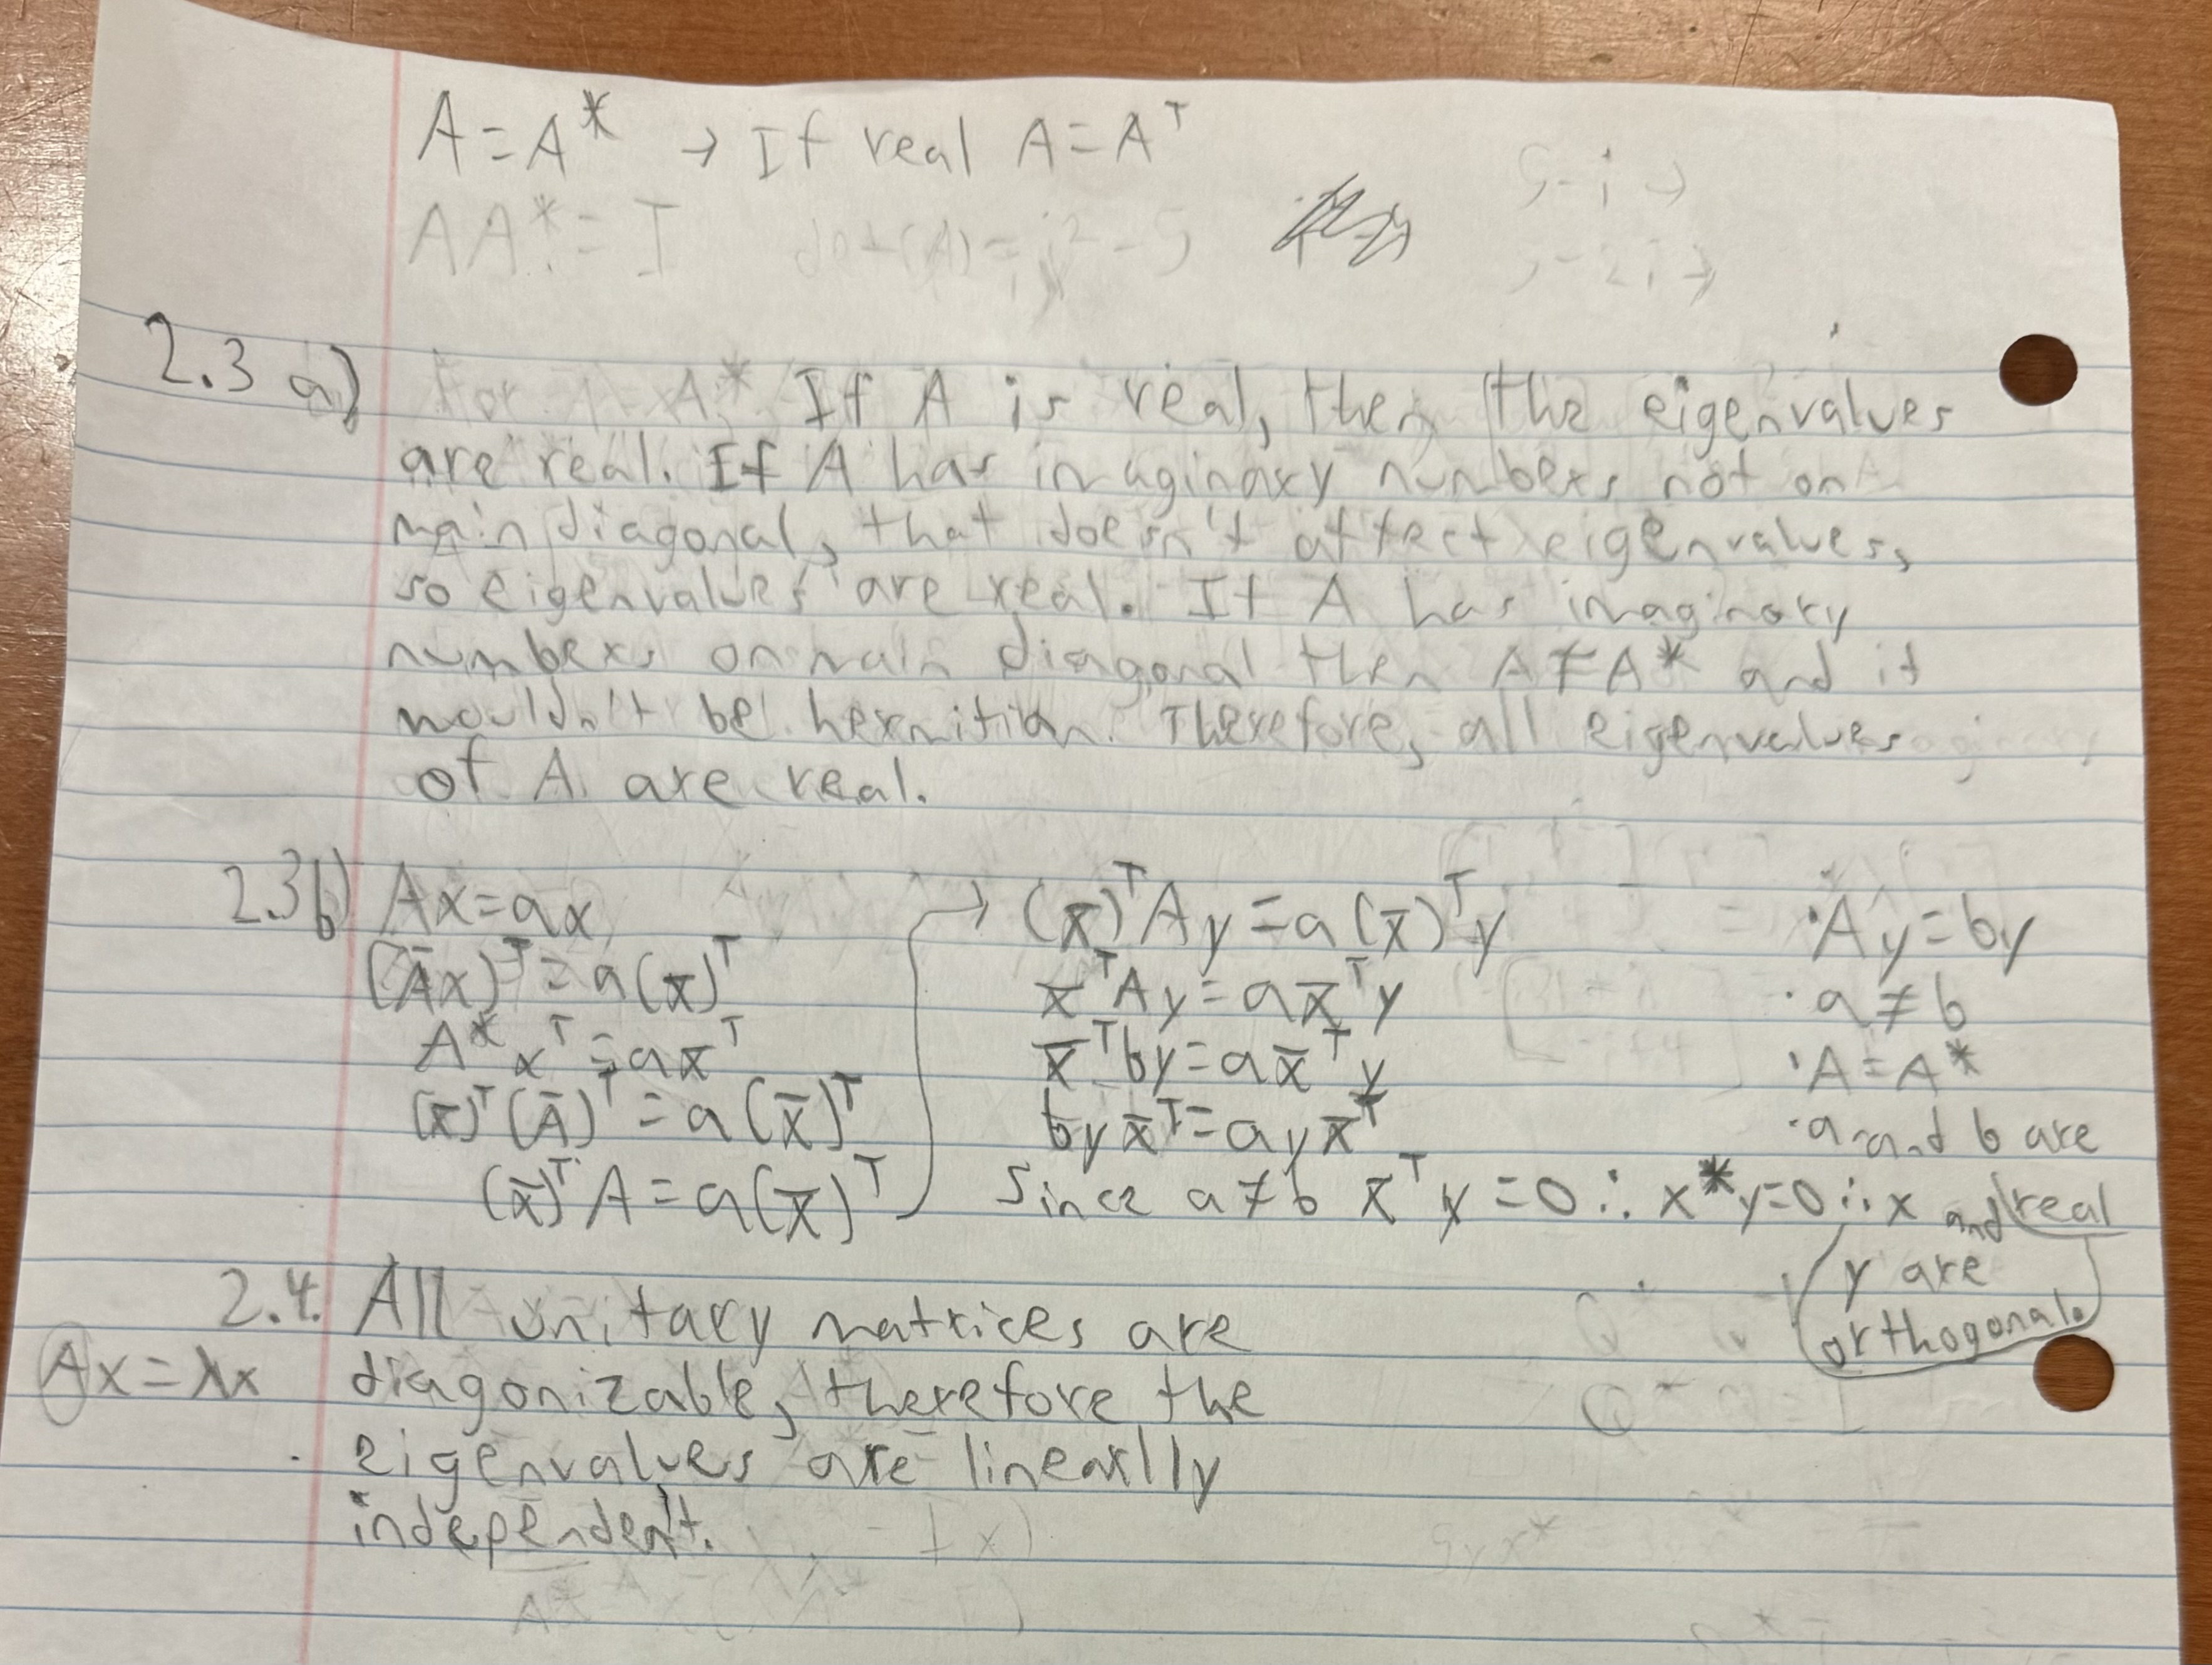 A=A* → If real A=Aᵀ
AA*=I det(A)=i²-5
5-i →
5-2i →
2.3 a) For A A* If A is real, then the eigenvalues
are real. If A has imaginary numbers not on
main diagonal, that doesn't affect eigenvalues,
so eigenvalues are real. If A has imaginary
numbers on main diagonal then A≠A* and it
wouldn't be hermitian. Therefore, all eigenvalues
of A are real.
2.3b) Ax=ax
(Āx)ᵀ=a(x̄)ᵀ
A*xᵀ=ax̄ᵀ
(x̄)ᵀ(Ā)ᵀ=a(x̄)ᵀ
(x̄)ᵀA=a(x̄)ᵀ
→ (x̄)ᵀAy=a(x̄)ᵀy
x̄ᵀAy=ax̄ᵀy
x̄ᵀby=ax̄ᵀy
byx̄ᵀ=ayx̄ᵀ
Since a≠b x̄ᵀy=0 ∴ x*y=0 ∴ x and
y are
orthogonal.
·Ay=by
·a≠b
·A=A*
·a and b are
real
2.4. All unitary matrices are
Ax=λx diagonizable, therefore the
eigenvalues are linearlly
independent.